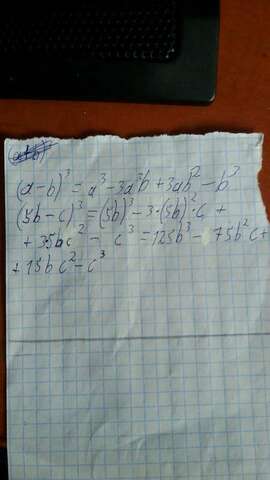 (a-b)³ = a³-3a³b+3ab²-b³
(5b-c)³=(5b)³-3·(5b)²·c+
+35bc²-c³=125b³-75b²c+
+15bc²-c³